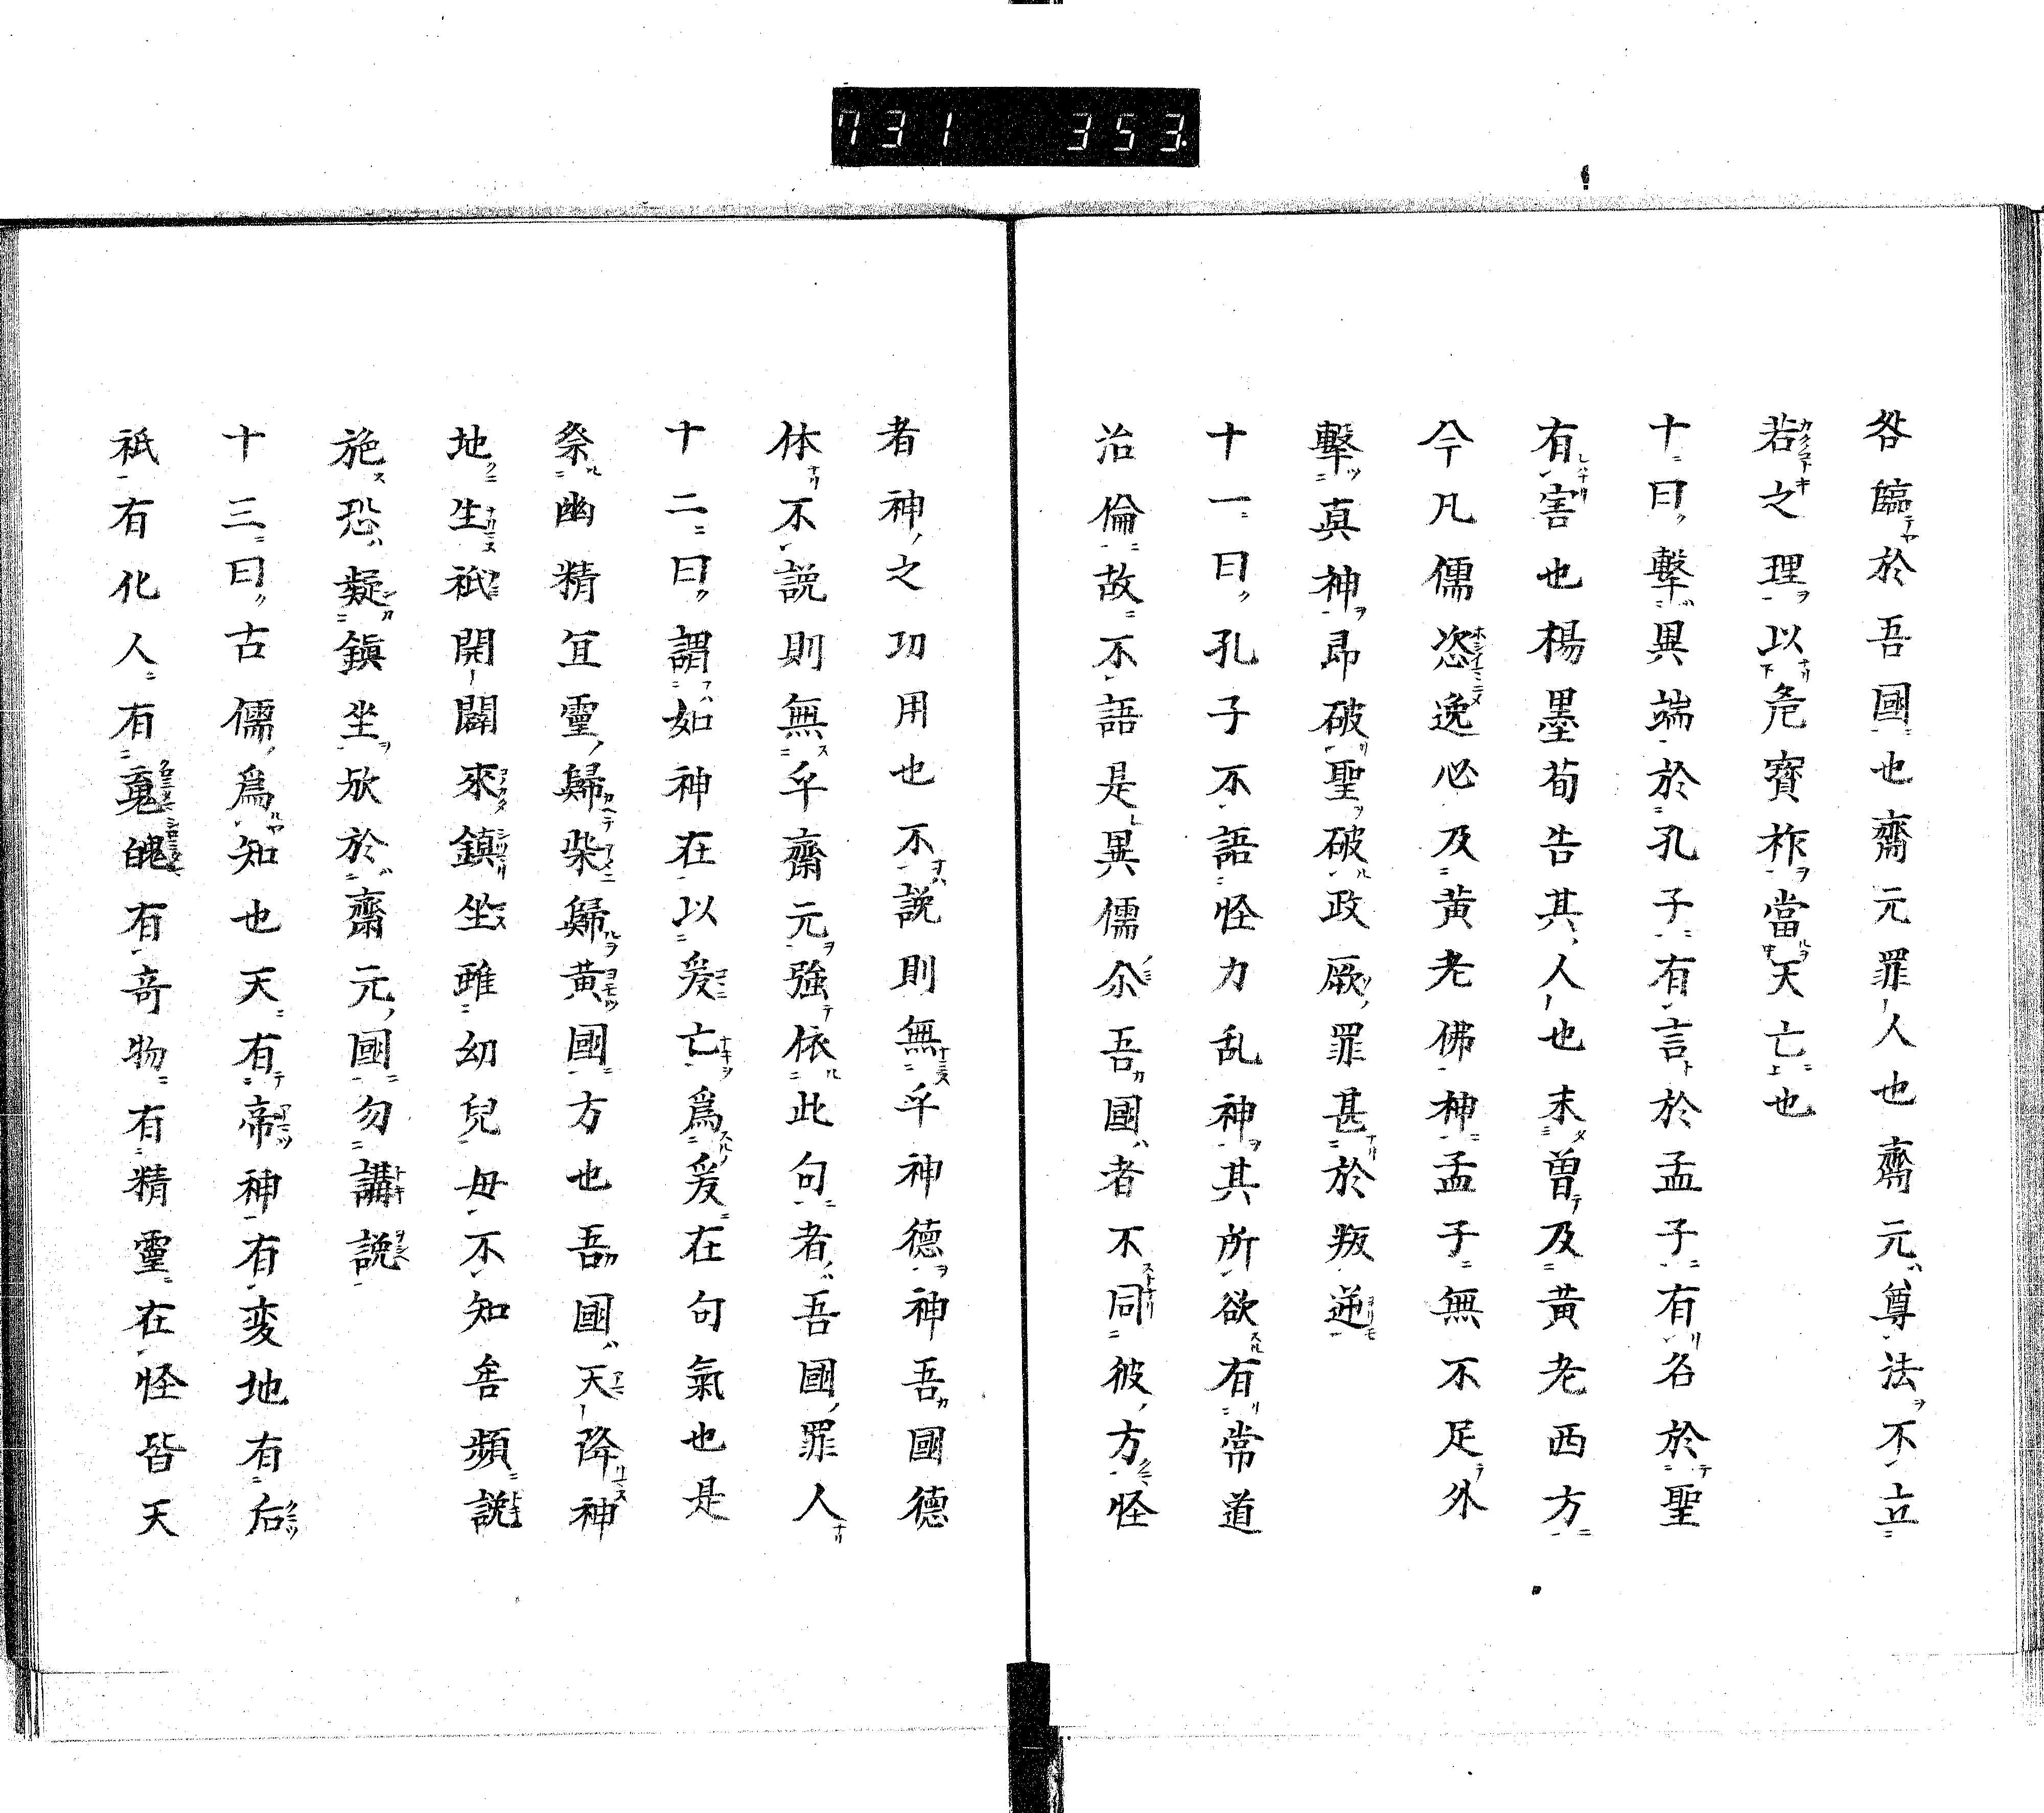 731 353
咎臨於吾國也齋元罪人也齋元尊法不立
若之理以危寳祚當天亡也
十曰擊異端於孔子有言於孟子有名於聖
有害也楊墨荀告其人也末曽及黄老西方
今凡儒恣逸心及黄老佛神孟子無不足外
擊真神即破聖破政厥罪甚於叛逆
十一曰孔子不語怪力乱神其所欲有常道
治倫故不語是異儒尒吾國者不同彼方怪
者神之功用也不說則無乎神德神吾國德
体不説則無乎齋元強依此句者吾國罪人
十二曰謂如神在以爰亡爲爰在句氣也是
祭幽精宜靈歸柴歸黄國方也吾國天降神
地生祇開闢來鎮坐雖幼兒毋不知舎頻説
施恐凝鎭坐於齋元國勿講説
十三曰古儒爲知也天有帝神有変地有后
祇有化人有䰟魄有奇物有精靈在怪皆天